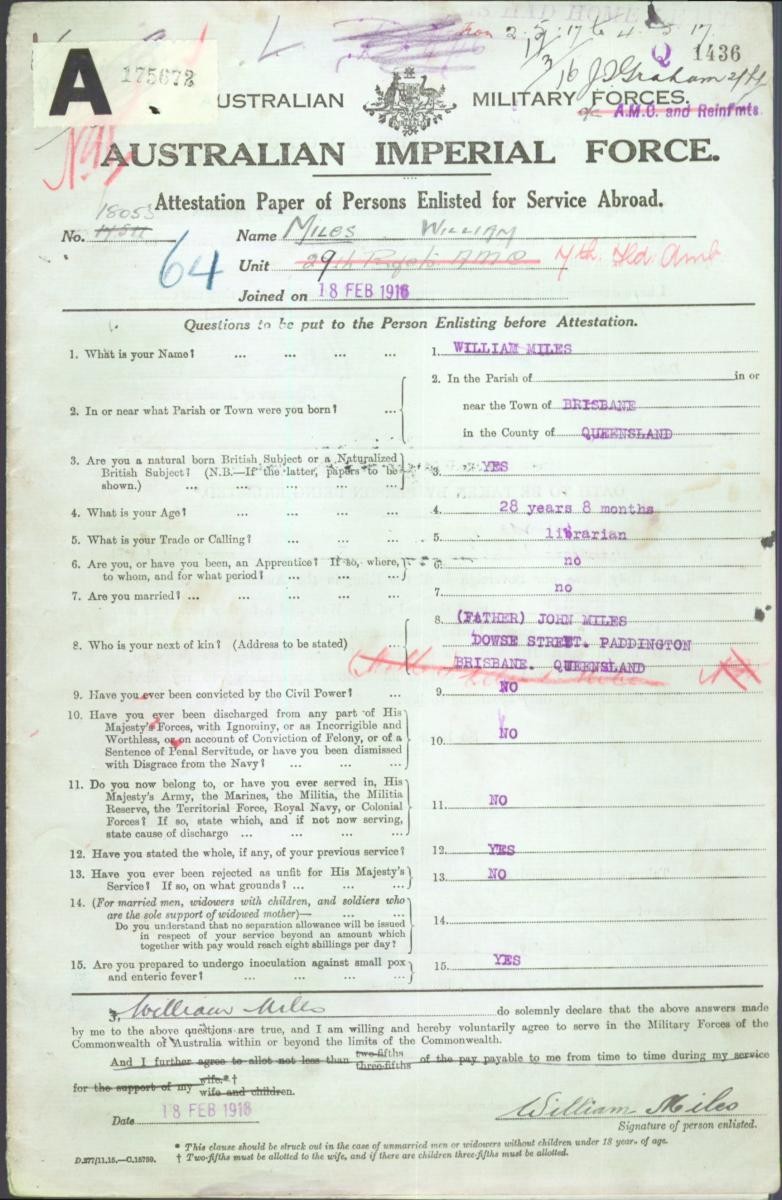 From 2.5.17 to 4.5.17
Q 1436
A 175672
J S Graham
AUSTRALIAN MILITARY FORCES.
A.M.C. and Reinf'mts.
AUSTRALIAN IMPERIAL FORCE.
Attestation Paper of Persons Enlisted for Service Abroad.
18053
No. 64
Name MILES WILLIAM
Unit 7th Fld. Amb
Joined on 18 FEB 1916
Questions to be put to the Person Enlisting before Attestation.
1. What is your Name? ... ... ... ... 1. WILLIAM MILES
2. In or near what Parish or Town were you born? ...
2. In the Parish of in or
near the Town of BRISBANE
in the County of QUEENSLAND
3. Are you a natural born British Subject or a Naturalized
British Subject? (N.B.—If the latter, papers to be
shown.) ... ... ... ...
3. YES
4. What is your Age? ... ... ... ... 4. 28 years 8 months
5. What is your Trade or Calling? ... ... ... 5. librarian
6. Are you, or have you been, an Apprentice? If so, where,
to whom, and for what period? ... ... ...
6. no
7. Are you married? ... ... ... ... ... 7. no
8. Who is your next of kin? (Address to be stated) ...
8. (FATHER) JOHN MILES
DOWSE STREET. PADDINGTON
BRISBANE. QUEENSLAND
9. Have you ever been convicted by the Civil Power? ... 9. NO
10. Have you ever been discharged from any part of His
Majesty's Forces, with Ignominy, or as Incorrigible and
Worthless, or on account of Conviction of Felony, or of a
Sentence of Penal Servitude, or have you been dismissed
with Disgrace from the Navy? ... ... ...
10. NO
11. Do you now belong to, or have you ever served in, His
Majesty's Army, the Marines, the Militia, the Militia
Reserve, the Territorial Force, Royal Navy, or Colonial
Forces? If so, state which, and if not now serving,
state cause of discharge ... ... ... ...
11. NO
12. Have you stated the whole, if any, of your previous service? 12. YES
13. Have you ever been rejected as unfit for His Majesty's
Service? If so, on what grounds? ... ... ...
13. NO
14. (For married men, widowers with children, and soldiers who
are the sole support of widowed mother)— ... ...
Do you understand that no separation allowance will be issued
in respect of your service beyond an amount which
together with pay would reach eight shillings per day?
14.
15. Are you prepared to undergo inoculation against small pox
and enteric fever? ... ... ... ...
15. YES
I, William Miles do solemnly declare that the above answers made
by me to the above questions are true, and I am willing and hereby voluntarily agree to serve in the Military Forces of the
Commonwealth of Australia within or beyond the limits of the Commonwealth.
And I further agree to allot not less than two-fifths three-fifths of the pay payable to me from time to time during my service
for the support of my wife.*† wife and children.
Date 18 FEB 1916
William Miles
Signature of person enlisted.
* This clause should be struck out in the case of unmarried men or widowers without children under 18 years of age.
D.277/11.15.—C.15759. † Two-fifths must be allotted to the wife, and if there are children three-fifths must be allotted.